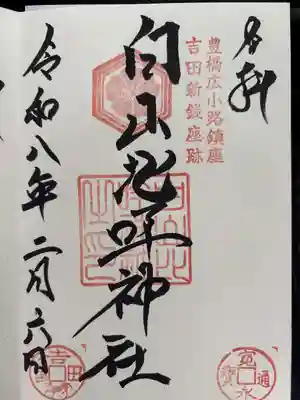 奉拝
豊橋広小路鎮座
吉田新銭座跡
白山比咩神社
令和八年二月六日
寛永通寳